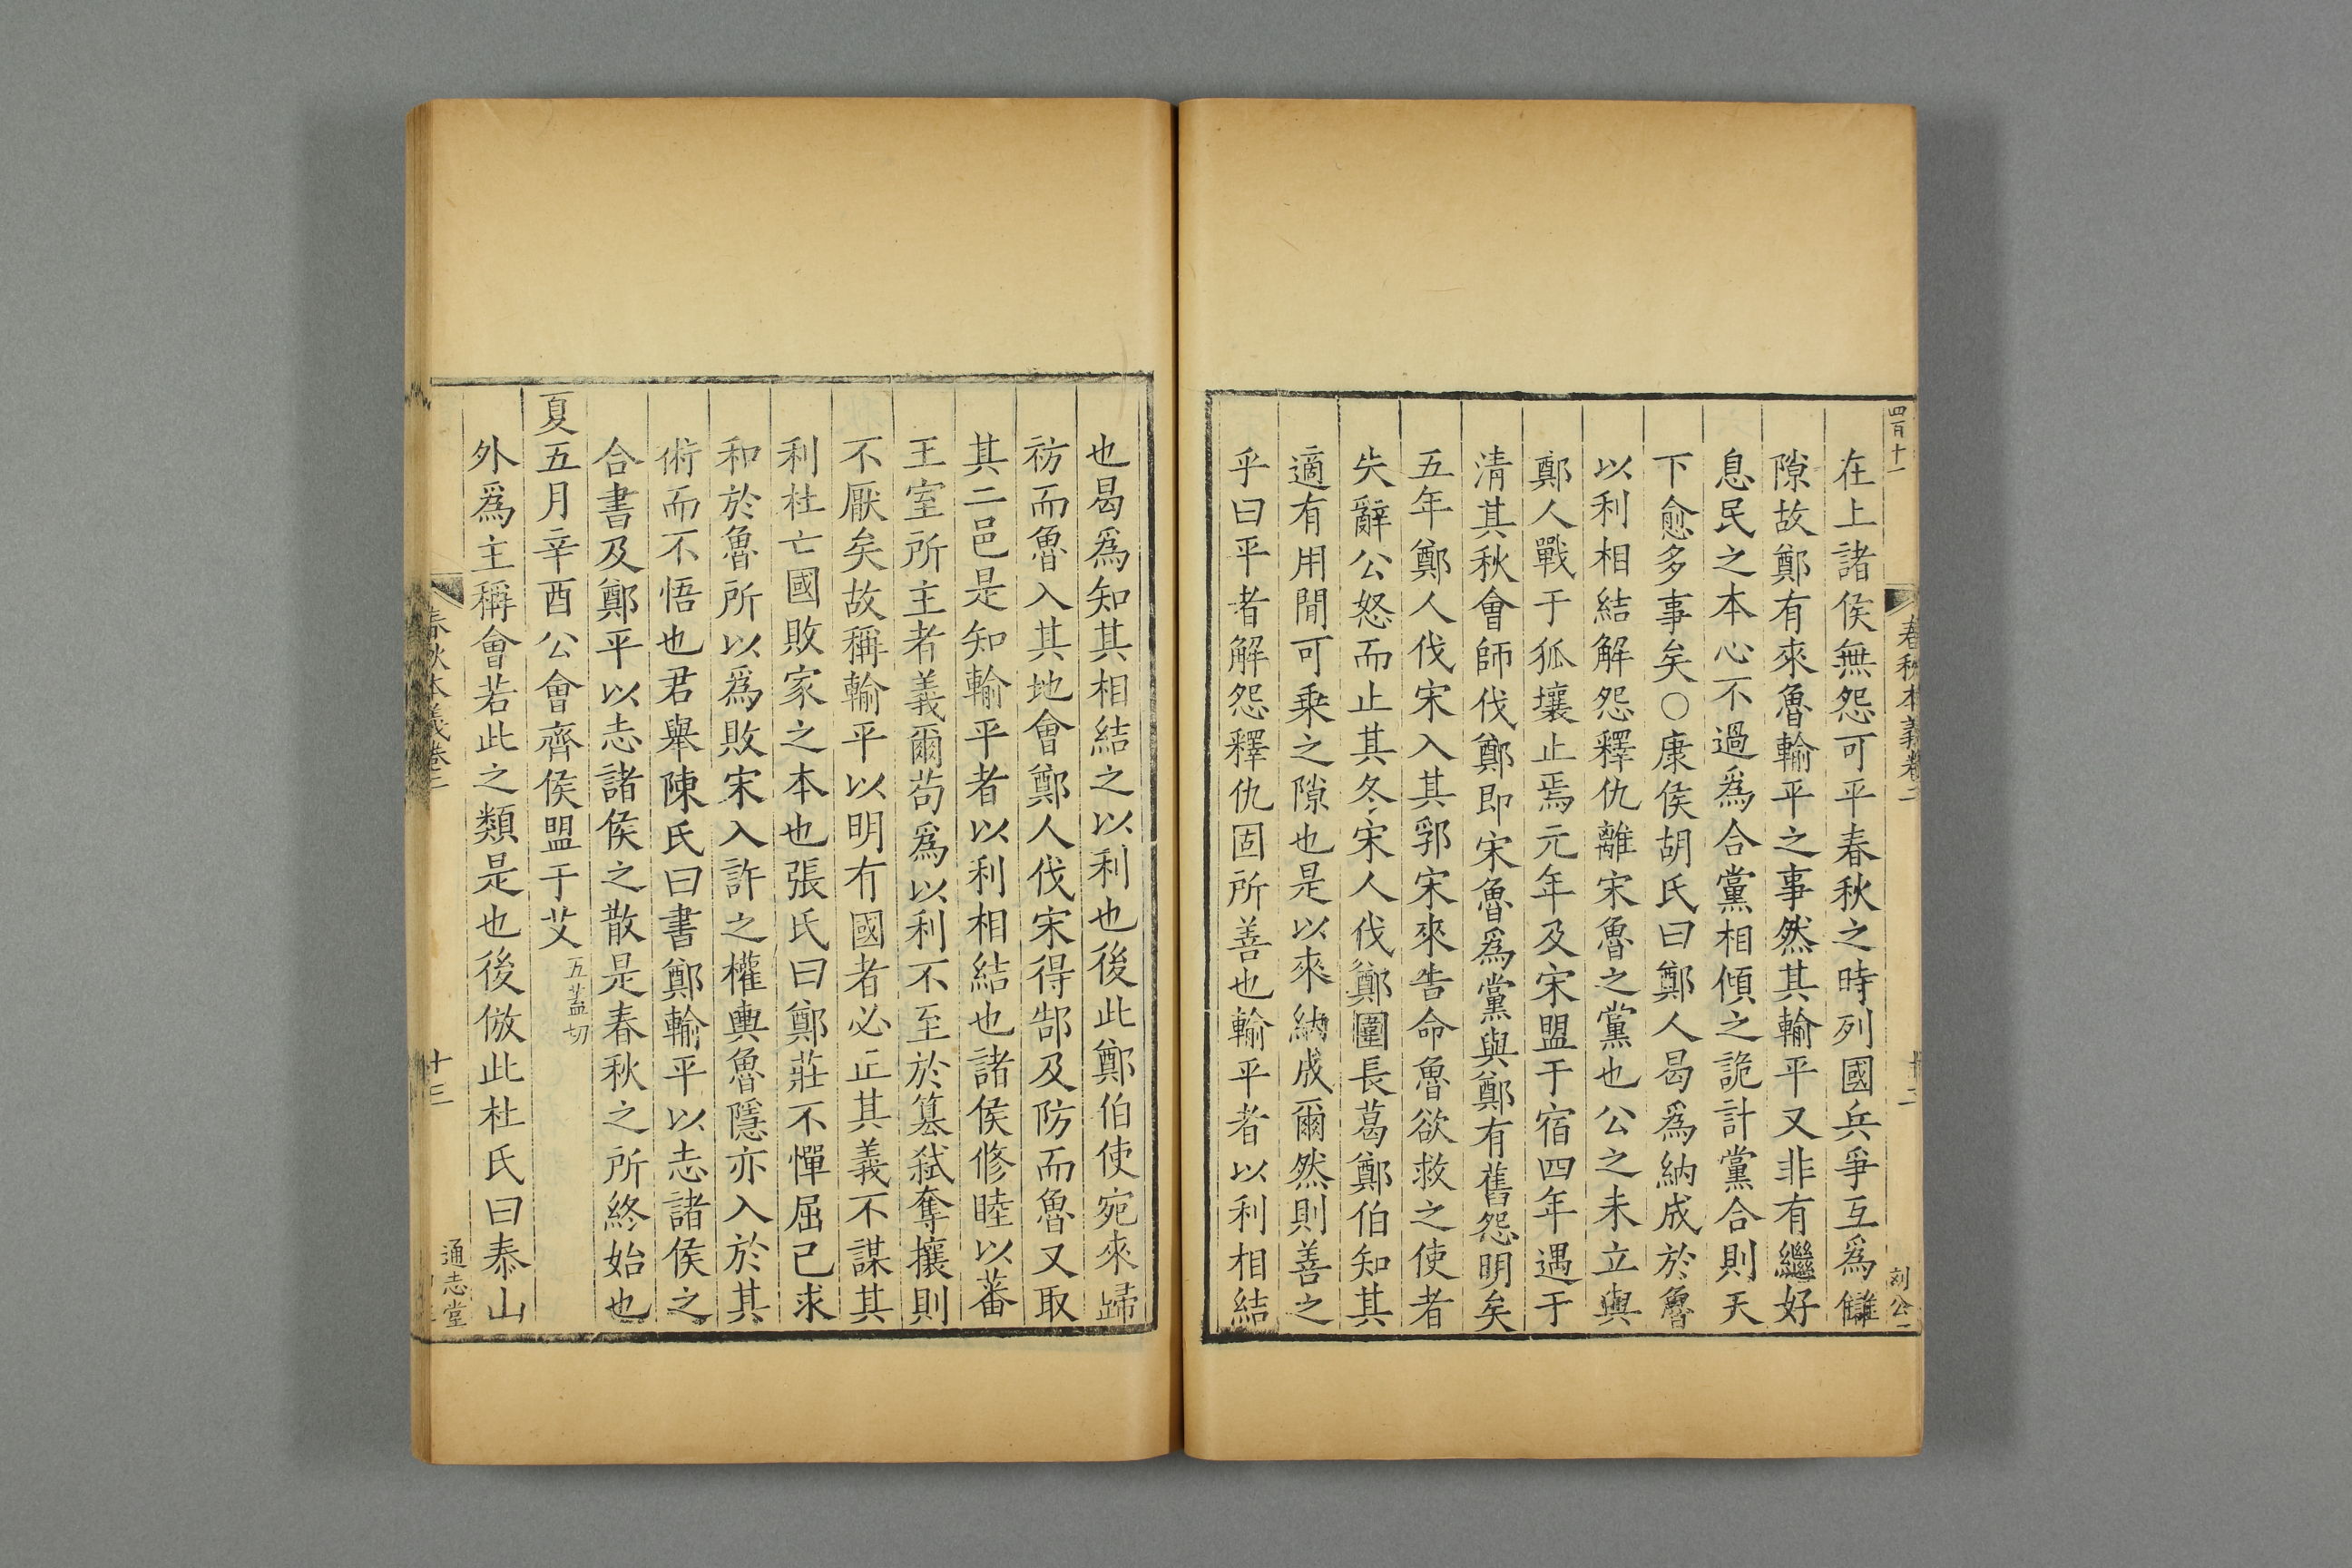 四百十一
春秋本義卷二
十二
在上諸侯無怨可平春秋之時列國兵爭互爲讎
隙故鄭有來魯輸平之事然其輸平又非有繼好
息民之本心不過爲合黨相傾之詭計黨合則天
下愈多事矣○康侯胡氏曰鄭人曷爲納成於魯
以利相結解怨釋仇離宋魯之黨也公之未立與
鄭人戰于狐壤止焉元年及宋盟于宿四年遇于
清其秋會師伐鄭即宋魯爲黨與鄭有舊怨明矣
五年鄭人伐宋入其郛宋來告命魯欲救之使者
失辭公怒而止其冬宋人伐鄭圍長葛鄭伯知其
適有用間可乗之隙也是以來納成爾然則善之
乎曰平者解怨釋仇固所善也輸平者以利相結
也曷爲知其相結之以利也後此鄭伯使宛來歸
祊而魯入其地會鄭人伐宋得郜及防而魯又取
其二邑是知輸平者以利相結也諸侯修睦以蕃
王室所主者義爾苟爲以利不至於簒弑奪攘則
不厭矣故稱輸平以明有國者必正其義不謀其
利杜亡國敗家之本也張氏曰鄭莊不憚屈己求
和於魯所以爲敗宋入許之權輿魯隱亦入於其
術而不悟也君舉陳氏曰書鄭輸平以志諸侯之
合書及鄭平以志諸侯之散是春秋之所終始也
夏五月辛酉公會齊侯盟于艾五蓋切
外爲主稱會若此之類是也後倣此杜氏曰泰山
春秋本義卷二
十三
通志堂